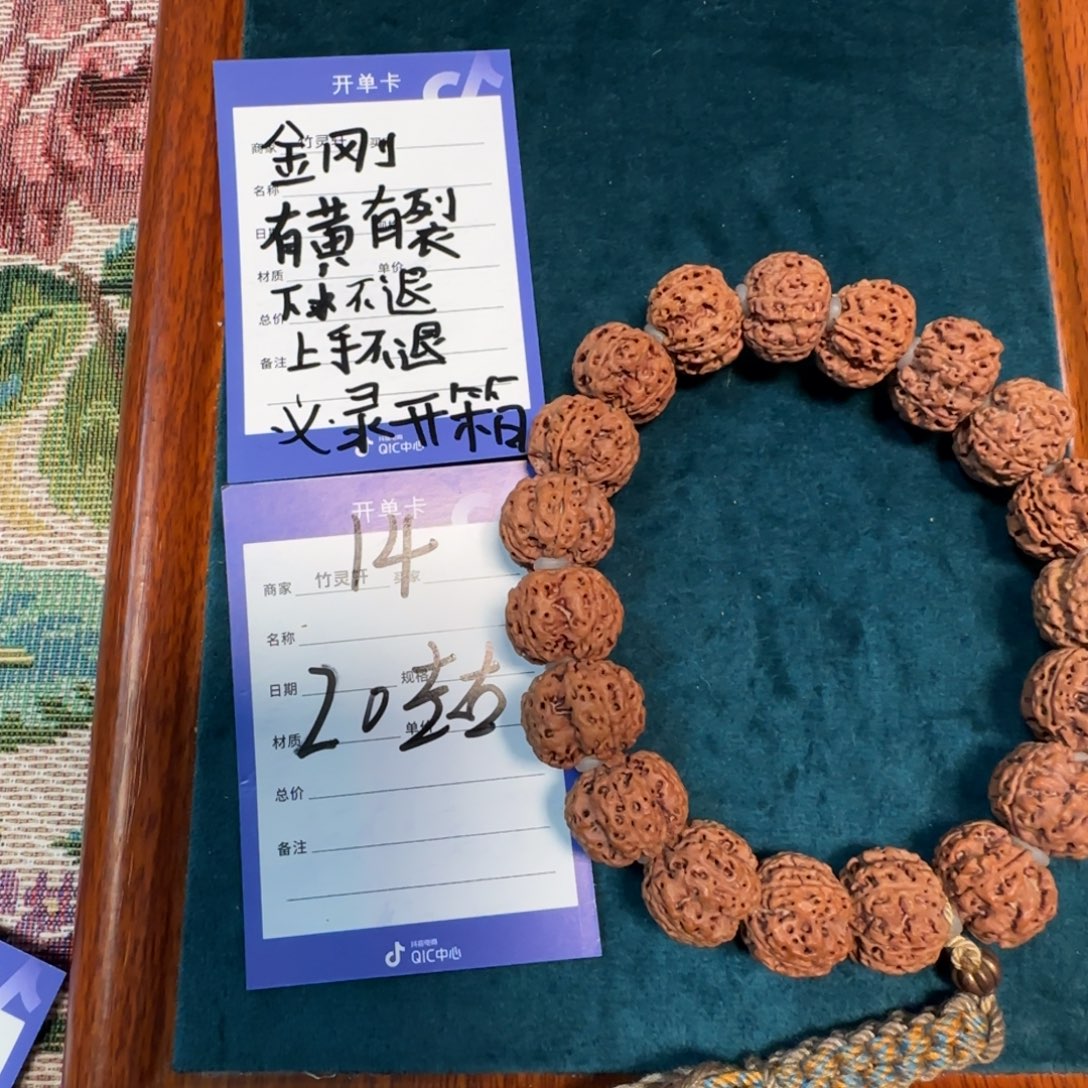 开单卡
商家 竹灵轩 买家
金刚
名称
有黄有裂
日期
材质 单价
下水不退
总价
上手不退
备注
必录开箱
抖音电商
QIC中心
开单卡
14
商家 竹灵轩 买家
名称
日期 规格
20
材质 单价
总价
备注
抖音电商
QIC中心